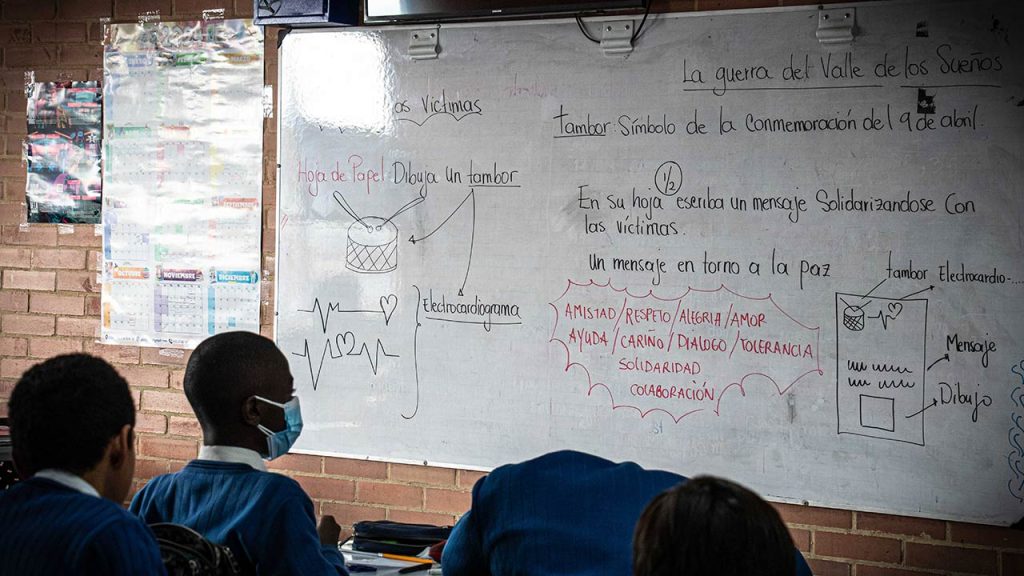 La guerra del Valle de los Sueños
os Víctimas
tambor: Símbolo de la Conmemoración del 9 de abril.
Hoja de Papel Dibuja Un tambor
1/2
En su hoja escriba un mensaje Solidarizandose Con
las víctimas.
Un mensaje en torno a la paz
tambor Electrocardio-....
Electrocardiograma
AMISTAD/RESPETO/ALEGRIA/AMOR
AYUDA/CARIÑO/DIALOGO/TOLERANCIA
SOLIDARIDAD
COLABORACIÓN
Mensaje
Dibujo
OCTUBRE NOVIEMBRE DICIEMBRE